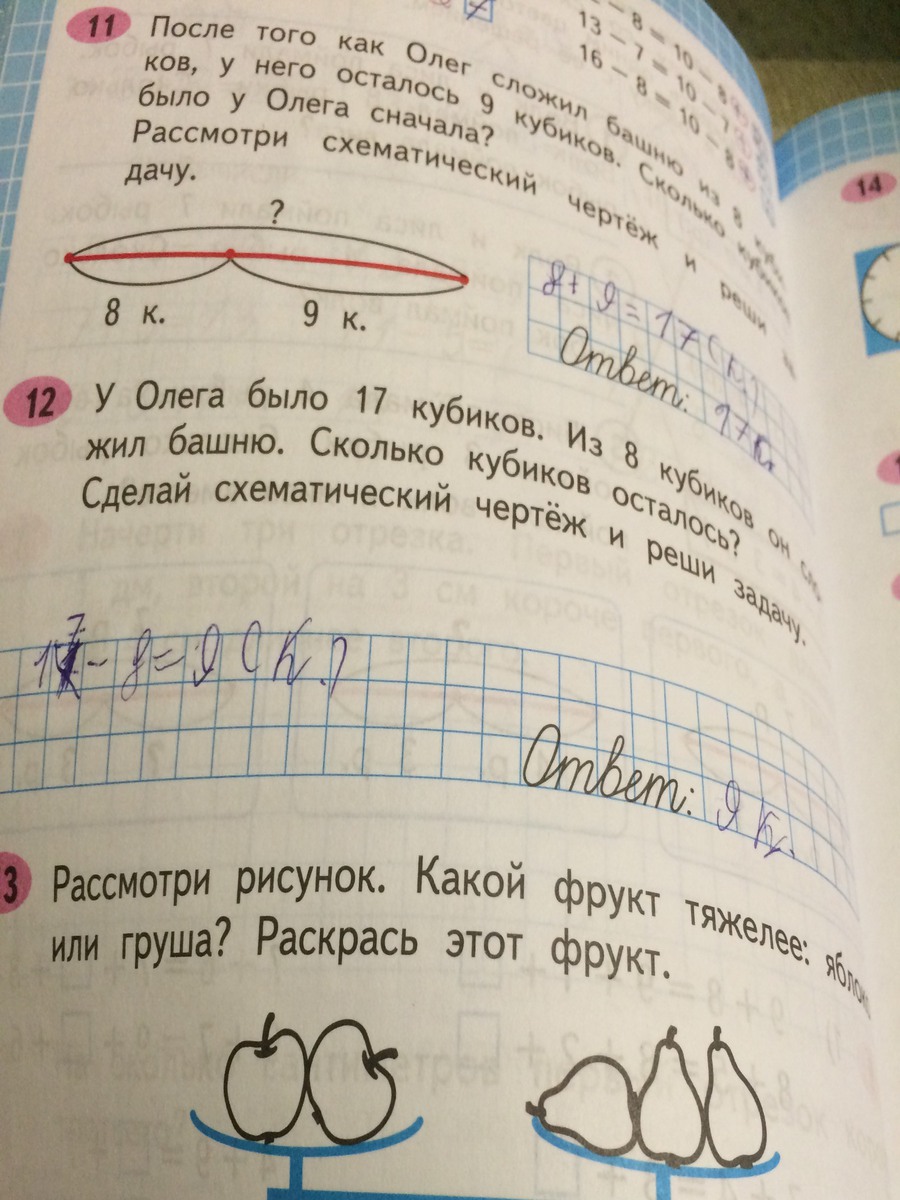 – 8 = 10 – 8
13 – 7 = 10 – 7
16 – 8 = 10 – 8
11 После того как Олег сложил башню из 8 куби
ков, у него осталось 9 кубиков. Сколько кубиков
было у Олега сначала?
Рассмотри схематический чертёж и реши за
дачу.
?
8 к. 9 к.
8 + 9 = 17 (к.)
Ответ: 17 к.
12 У Олега было 17 кубиков. Из 8 кубиков он сло
жил башню. Сколько кубиков осталось?
Сделай схематический чертёж и реши задачу.
17 – 8 = 9 (к.)
Ответ: 9 к.
3 Рассмотри рисунок. Какой фрукт тяжелее: яблоко
или груша? Раскрась этот фрукт.
14